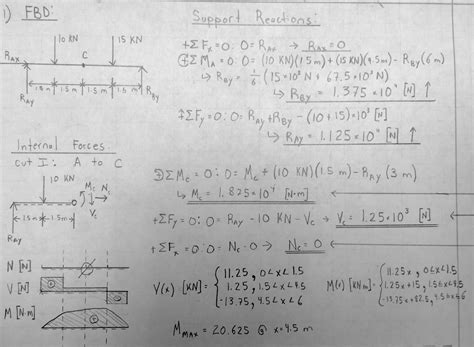 1) FBD:
10 KN
15 KN
R_AX
C
1.5 m
1.5 m
1.5 m
1.5 m
R_AY
R_BY
Support Reactions:
→+ΣF_x = 0: 0 = R_AX → R_AX = 0
ΣM_A = 0: 0 = (10 KN)(1.5 m) + (15 KN)(4.5 m) - R_BY(6 m)
↳ R_BY = 1/6 (15×10³ N + 67.5×10³ N)
↳ R_BY = 1.375×10⁴ [N] ↑
ΣF_Y = 0: 0 = R_AY + R_BY - (10+15)×10³ [N]
↳ R_AY = 1.125×10⁴ [N] ↑
Internal Forces:
cut I: A to C
10 KN
M_C
N_C
V_C
1.5 m
1.5 m
R_AY
ΣM_C = 0: 0 = M_C + (10 KN)(1.5 m) - R_AY (3 m)
↳ M_C = 1.875×10⁴ [N·m]
+ΣF_Y = 0: 0 = R_AY - 10 KN - V_C → V_C = 1.25×10³ [N]
+ΣF_x = 0: 0 = N_C - 0 → N_C = 0
N [N]
V [N]
M [N·m]
V(x) [KN] = { 11.25, 0<x<1.5
1.25, 1.5<x<4.5
-13.75, 4.5<x<6
M(x) [KN·m] = { 11.25x, 0<x<1.5
1.25x+15, 1.5<x<4.5
-13.75x+82.5, 4.5<x<6
M_MAX = 20.625 @ x=4.5 m